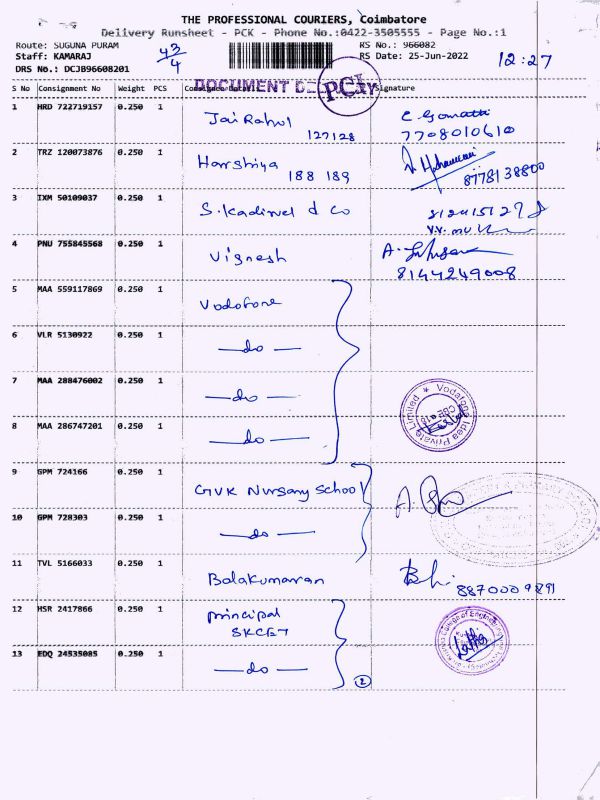 THE PROFESSIONAL COURIERS, Coimbatore
Delivery Runsheet - PCK - Phone No.:0422-3505555 - Page No.:1
Route: SUGUNA PURAM 43/4 RS No.: 966082
Staff: KAMARAJ RS Date: 25-Jun-2022 12:27
DRS No.: DCJB96608201
DOCUMENT PCK
S No Consignment No Weight PCS Consignee Details Signature
1 HRD 722719157 0.250 1 Jai Rahul 127128 C. Gomathi
7708010610
2 TRZ 120073876 0.250 1 Harshiya 188 189 8778138800
3 IXM 50109037 0.250 1 S. Kadirvel & Co
V.V.
4 PNU 755845568 0.250 1 Vignesh A.
8144249008
5 MAA 559117869 0.250 1 Vodofone
6 VLR 5130922 0.250 1 — do —
7 MAA 288476002 0.250 1 — do — Vodafone Idea Private Limited
8 MAA 286747201 0.250 1 — do —
9 GPM 724166 0.250 1 GVK Nursary School A.
10 GPM 728303 0.250 1 — do —
11 TVL 5166033 0.250 1 Balakumaran
12 HSR 2417866 0.250 1 principal
SKCET College of Engineering
13 EDQ 24535085 0.250 1 — do — 2